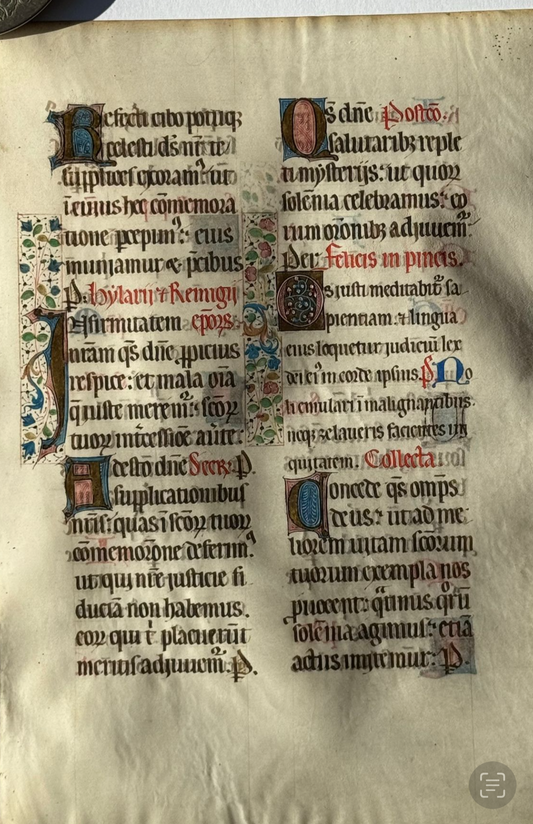 Refecti cibo potuq̄ȝ
celesti ds̄ nr̄ te
supplices exoram᷒ ut
i cuius hec cōmemora
tione ꝑcepim᷒: eius
muniamur ⁊ p̄cibus
P. hylarii ⁊ Remigii
Infirmitatem ep̄ors.
nr̄am qs̄ dn̄e ꝓpicius
respice: et mala oīa
q̄ iuste merem᷒: sc̄oꝝ
tuoꝝ int̄cessiōe au̾te.
Adesto dn̄e Secr̄. P.
supplicationibus
nr̄is: quas ī sc̄oꝝ tuoꝝ
cōmemor̄one deferim᷒
ut qui nr̄e iusticie fi
duciā non habemus.
eoꝝ qui t̄ placuerūt
meritis adiuuem᷒. P.
Qs̄ dn̄e Postcō.
salutaribȝ reple
ti mysterijs: ut quoꝝ
solēnia celebramus: eo
rum orōnibȝ adiuuem᷒.
Per Felicis in pincis.
Os iusti meditabit᷒ sa
pientiam. ⁊ lingua
eius loquetur iudiciū lex
dei ei᷒ in corde ipsius. P̄s No
li emulari ī malignantibus.
neqȝ zelaueris facientes in
quitatem. Collecta
Concede qs̄ omp̄s
deus: ut ad me
liorem uitam sc̄orum
tuorum exempla nos
ꝓuocent: q̄tinus q̄ꝝ
solēnia agimus: etiā
actus imitemur: P.